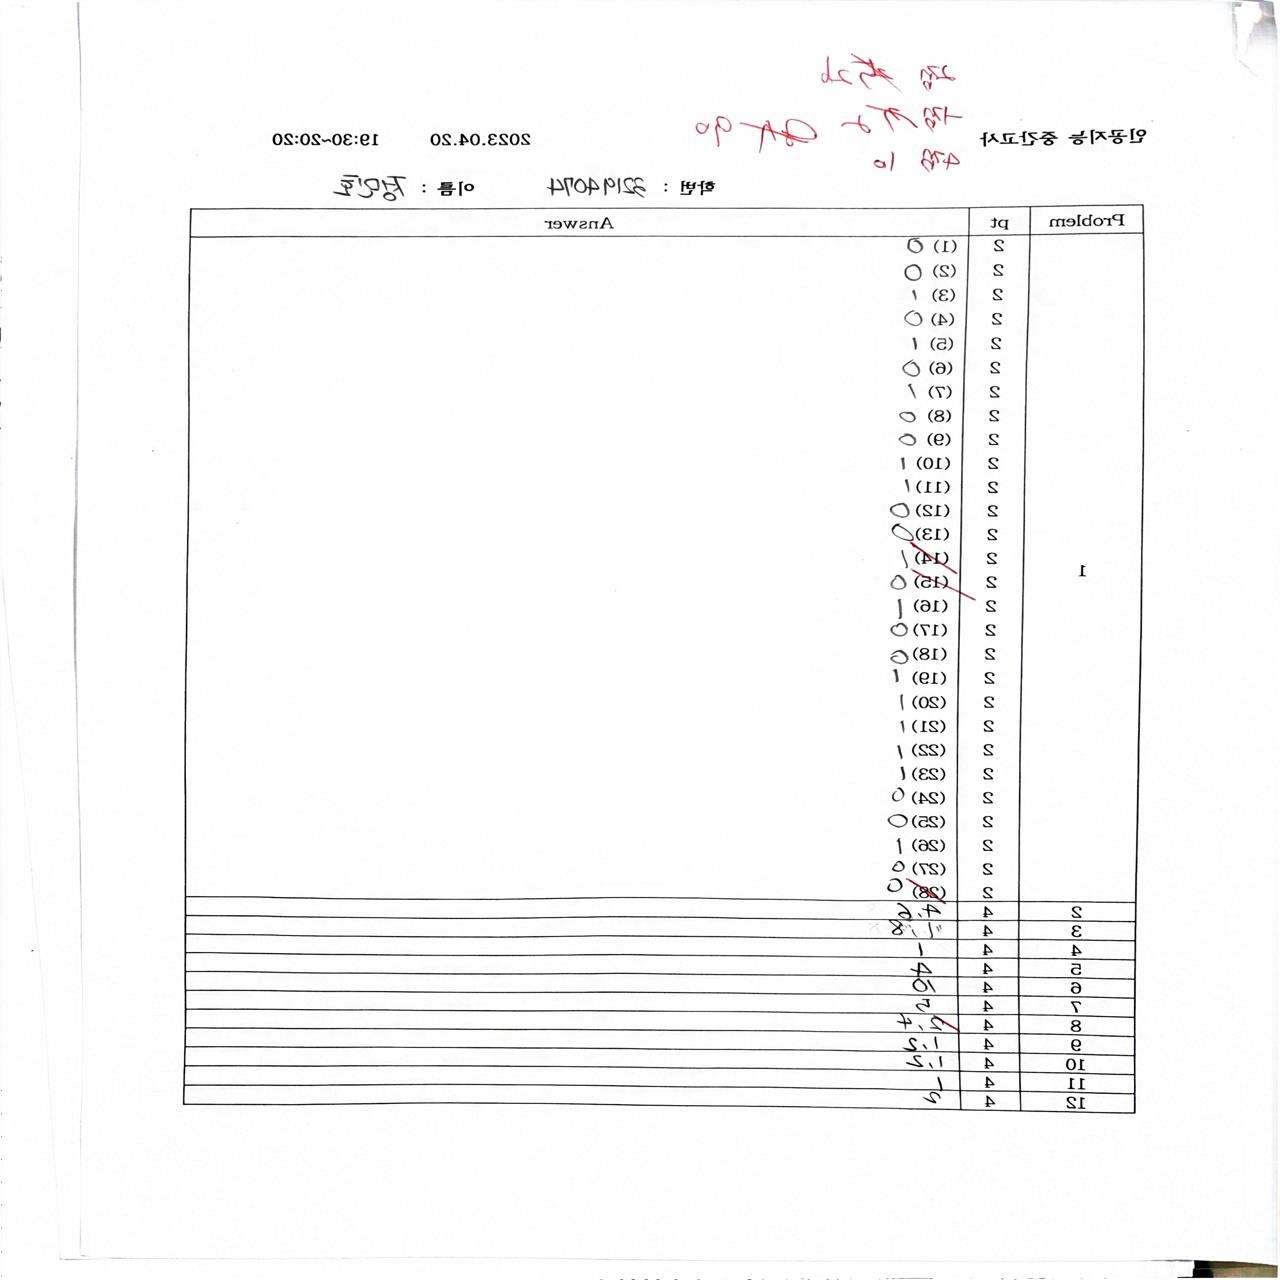 2점
1점
4점 10
90
인공지능 중간고사 2023.04.20 19:30~20:20
학번 : 32194074 이름 : 정민호
Problem pt Answer
1
2 (1) 0
2 (2) 0
2 (3) 1
2 (4) 0
2 (5) 1
2 (6) 0
2 (7) 1
2 (8) 0
2 (9) 0
2 (10) 1
2 (11) 1
2 (12) 0
2 (13) 0
2 (14) 1
2 (15) 0
2 (16) 1
2 (17) 0
2 (18) 0
2 (19) 1
2 (20) 1
2 (21) 1
2 (22) 1
2 (23) 1
2 (24) 0
2 (25) 0
2 (26) 1
2 (27) 0
2 (28) 0
2 4
3 4
4 4 -
5 4 4
6 4
7 4
8 4
9 4 -1.2
10 4
11 4
12 4